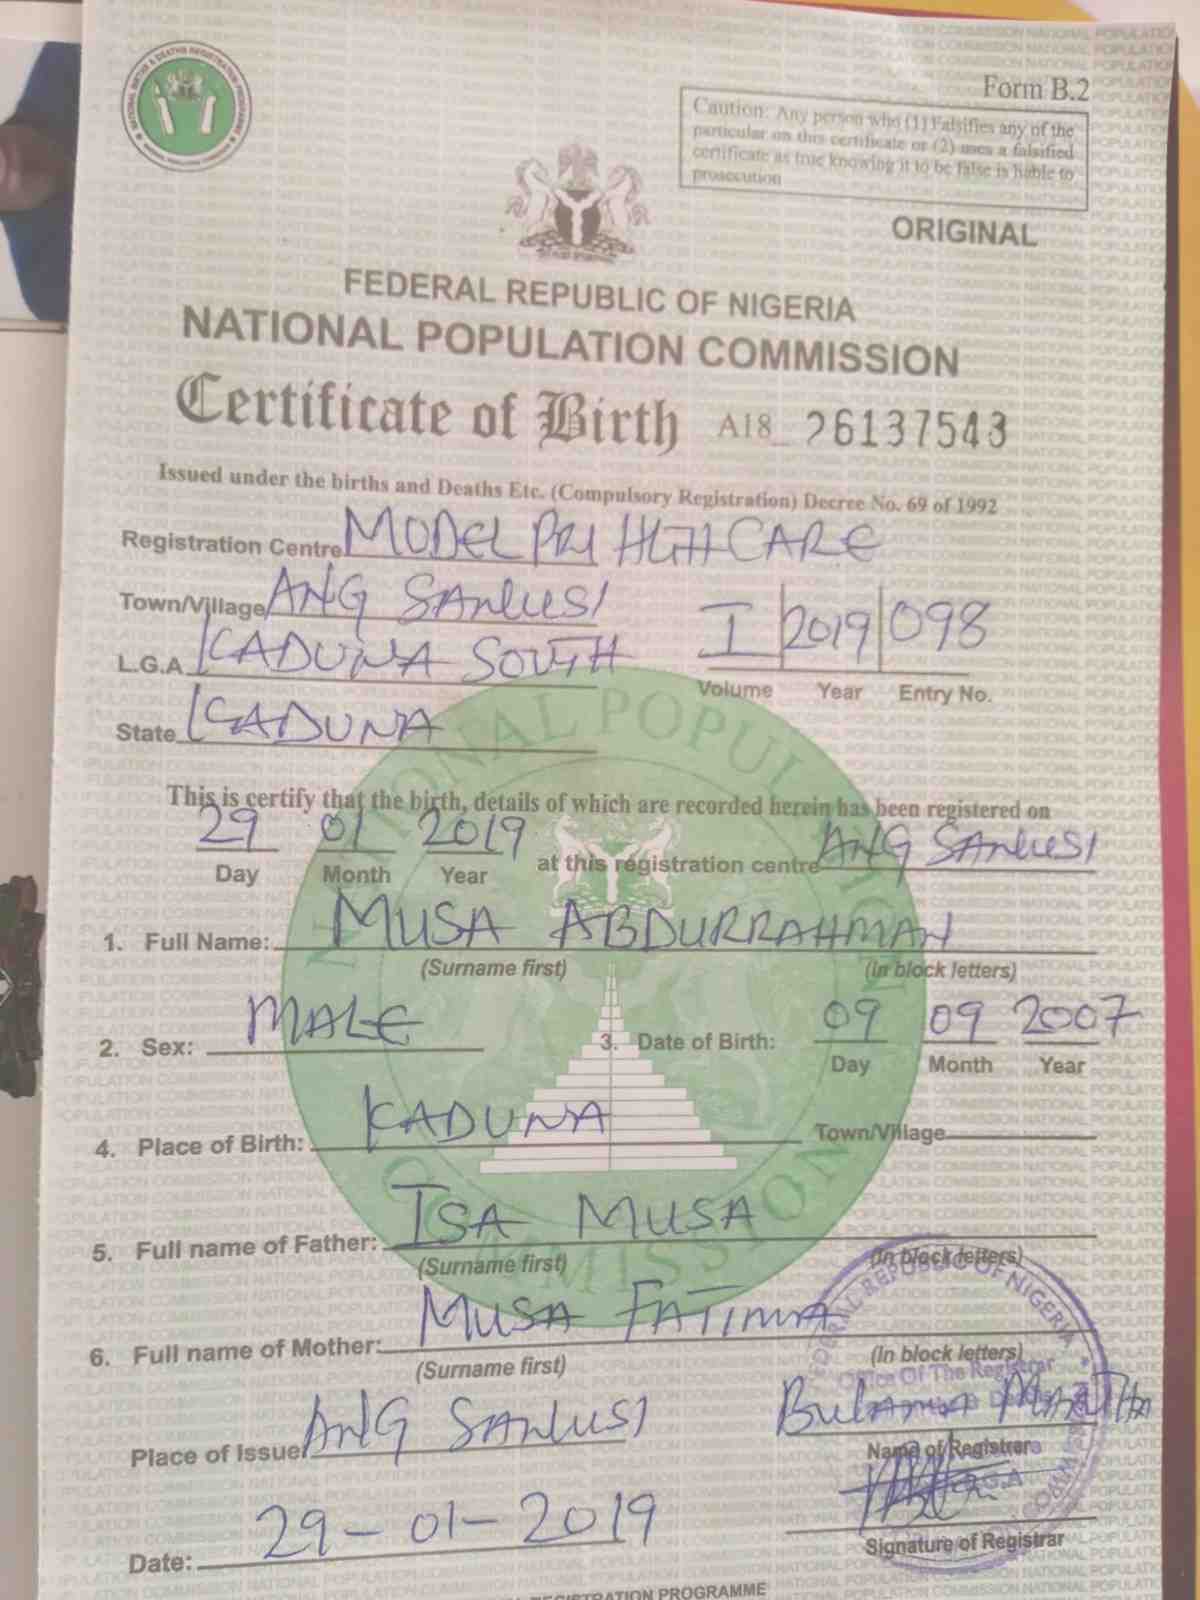 Form B.2
Caution: Any person who (1) Falsifies any of the
particular on this certificate or (2) uses a falsified
certificate as true knowing it to be false is liable to
prosecution
ORIGINAL
FEDERAL REPUBLIC OF NIGERIA
NATIONAL POPULATION COMMISSION
Certificate of Birth A18 26137543
Issued under the births and Deaths Etc. (Compulsory Registration) Decree No. 69 of 1992
Registration Centre MODEL PRI HLTH CARE
Town/Village ANG SANUSI
L.G.A KADUNA SOUTH
I 2019 098
Volume Year Entry No.
State KADUNA
This is certify that the birth, details of which are recorded herein has been registered on
29 01 2019 at this registration centre ANG SANUSI
Day Month Year
1. Full Name: MUSA ABDURRAHMAN
(Surname first) (In block letters)
2. Sex: MALE 3. Date of Birth: 09 09 2007
Day Month Year
4. Place of Birth: KADUNA Town/Village
5. Full name of Father: ISA MUSA
(Surname first) (In block letters)
6. Full name of Mother: MUSA FATIMA
(Surname first) (In block letters)
Place of Issue ANG SANUSI
Name of Registrar
Date: 29-01-2019
Signature of Registrar
REGISTRATION PROGRAMME
NATIONAL POPULATION COMMISSION
FEDERAL REPUBLIC OF NIGERIA
Office Of The Registrar